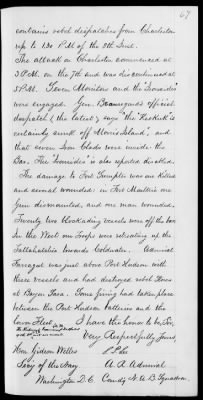 67
contains rebel despatches from Charleston
up to 1.30 P.M. of the 8th Inst.
The attack on Charleston commenced at
3 P.M. on the 7th and was discontinued at
5 P.M. Seven Monitors and the "Ironsides"
were engaged. Gen. Beauregard's official
despatch (the latest) says "the Keokuk is
certainly sunk off Morris Island", and
that seven Iron Clads were inside the
Bar. The "Ironsides" is also reported disabled.
The damage to Fort Sumpter was one killed
and several wounded: in Fort Moultrie one
Gun dismounted, and one man wounded.
Twenty two blockading vessels were off the bar.
In the West our troops were retreating up the
Tallahatchie towards Coldwater. Admiral
Farragut was just above Port Hudson with
three vessels and had destroyed rebel stores
at Bayou Sara. Some firing had taken place
between the Port Hudson batteries and the
lower Fleet. I have the honor to be, Sir,
Very Respectfully Yours
Hon. Gideon Welles S. P. Lee
Secy of the Navy A. R. Admiral
Washington D.C. Comdg N. A. B. Squadron.